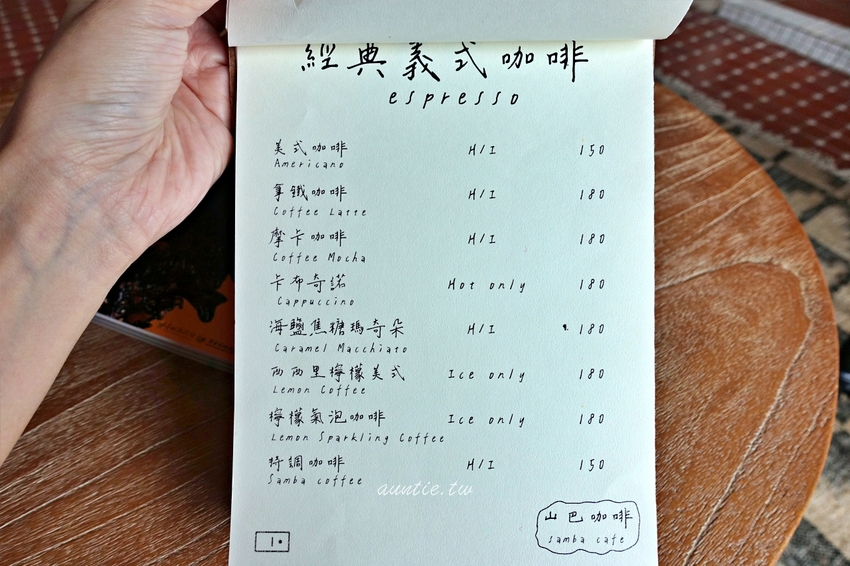 經典義式咖啡
espresso
美式咖啡 H/I 150
Americano
拿鐵咖啡 H/I 180
Coffee Latte
摩卡咖啡 H/I 180
Coffee Mocha
卡布奇諾 Hot only 180
Cappuccino
海鹽焦糖瑪奇朵 H/I 180
Caramel Macchiato
西西里檸檬美式 Ice only 180
Lemon Coffee
檸檬氣泡咖啡 Ice only 180
Lemon Sparkling Coffee
特調咖啡 H/I 150
Samba coffee
auntie.tw
山巴咖啡
samba cafe